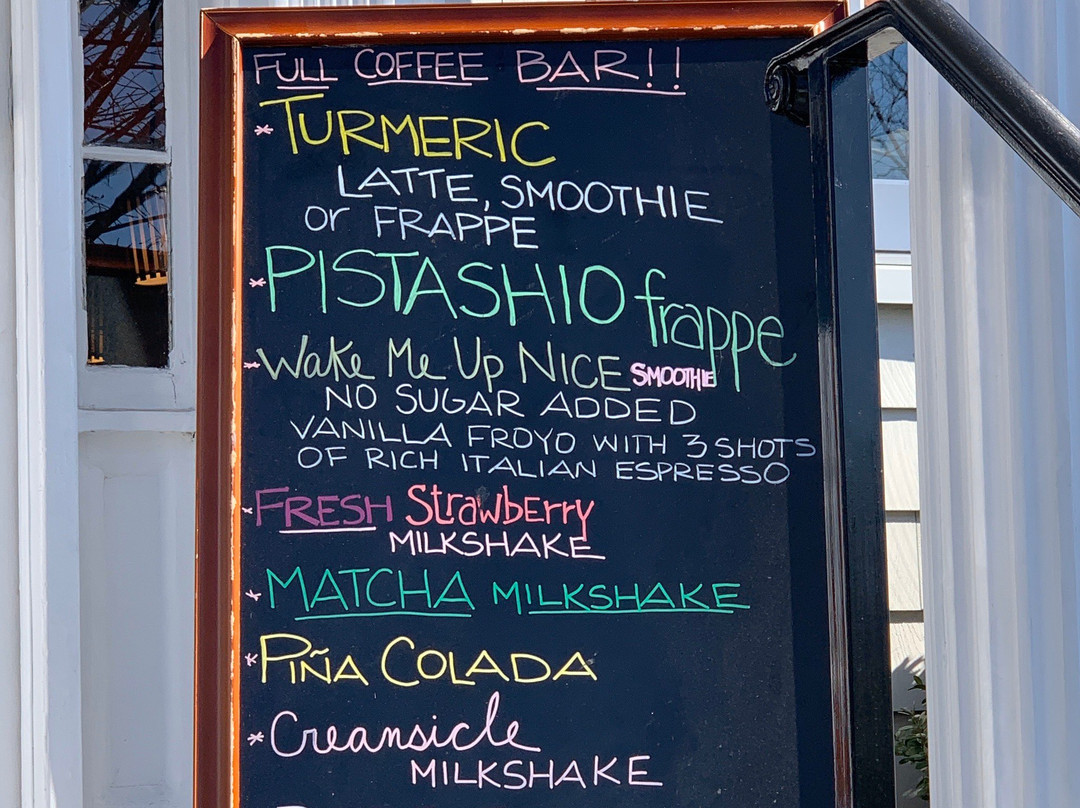 FULL COFFEE BAR!!
* TURMERIC
LATTE, SMOOTHIE
or FRAPPE
* PISTASHIO frappe
* Wake Me Up NICE SMOOTHIE
NO SUGAR ADDED
VANILLA FROYO WITH 3 SHOTS
OF RICH ITALIAN ESPRESSO
* FRESH Strawberry
MILKSHAKE
* MATCHA MILKSHAKE
* PIÑA COLADA
* Creansicle
MILKSHAKE